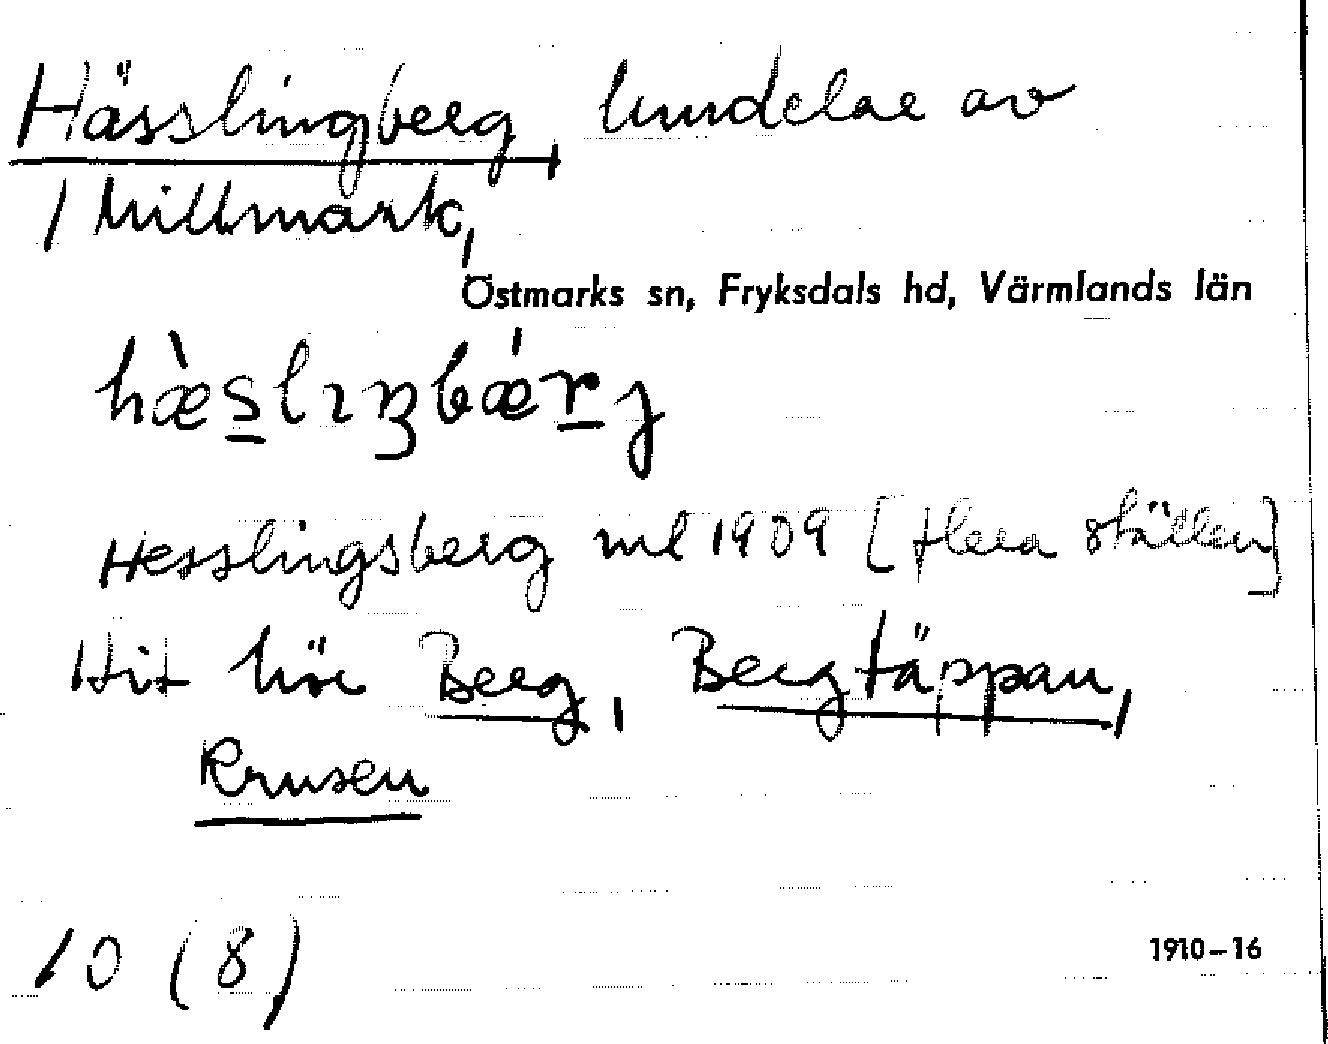 Hässlingberg, hemdelar av
/ Millmark,
Östmarks sn, Fryksdals hd, Värmlands län
hæ̀s̲lɪŋbǽr̲j
Hesslingsberg ml 1909 [flera ställen]
Hit hör Berg, Bergtäppan,
Krusen
10 (8)
1910–16